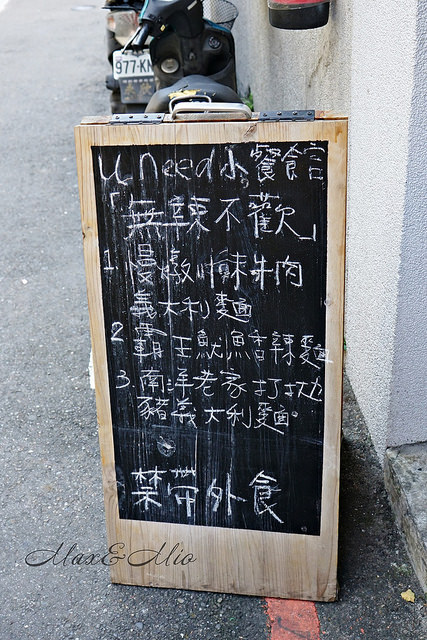 977-KN
U need小餐館
「無辣不歡」
1. 慢熬川味牛肉
義大利麵
2 霸王魷魚香辣麵
3. 南洋老家打拋
豬義大利麵。
禁帶外食
Max&Mio